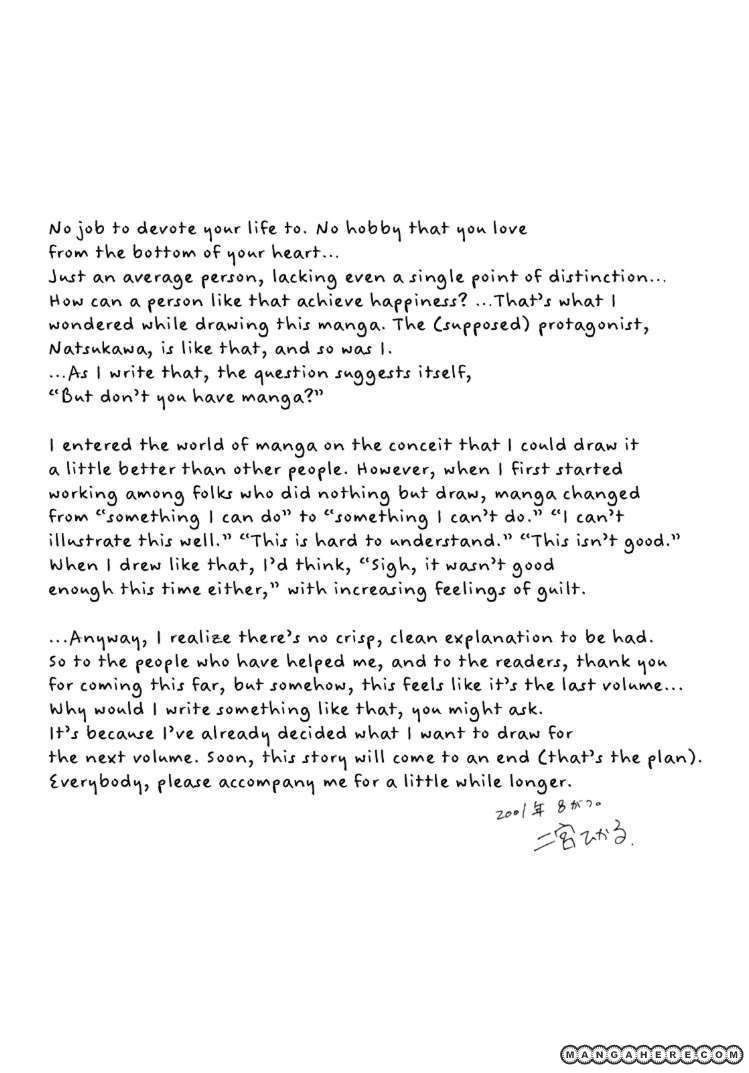 No job to devote your life to. No hobby that you love
from the bottom of your heart...
Just an average person, lacking even a single point of distinction...
How can a person like that achieve happiness? ...That's what I
wondered while drawing this manga. The (supposed) protagonist,
Natsukawa, is like that, and so was I.
...As I write that, the question suggests itself,
“But don't you have manga?”
I entered the world of manga on the conceit that I could draw it
a little better than other people. However, when I first started
working among folks who did nothing but draw, manga changed
from “something I can do” to “something I can't do.” “I can't
illustrate this well.” “This is hard to understand.” “This isn't good.”
When I drew like that, I'd think, “Sigh, it wasn't good
enough this time either,” with increasing feelings of guilt.
...Anyway, I realize there's no crisp, clean explanation to be had.
So to the people who have helped me, and to the readers, thank you
for coming this far, but somehow, this feels like it's the last volume...
Why would I write something like that, you might ask.
It's because I've already decided what I want to draw for
the next volume. Soon, this story will come to an end (that's the plan).
Everybody, please accompany me for a little while longer.
2001年 8がつ。
二宮ひかる.
MANGAHERE.COM